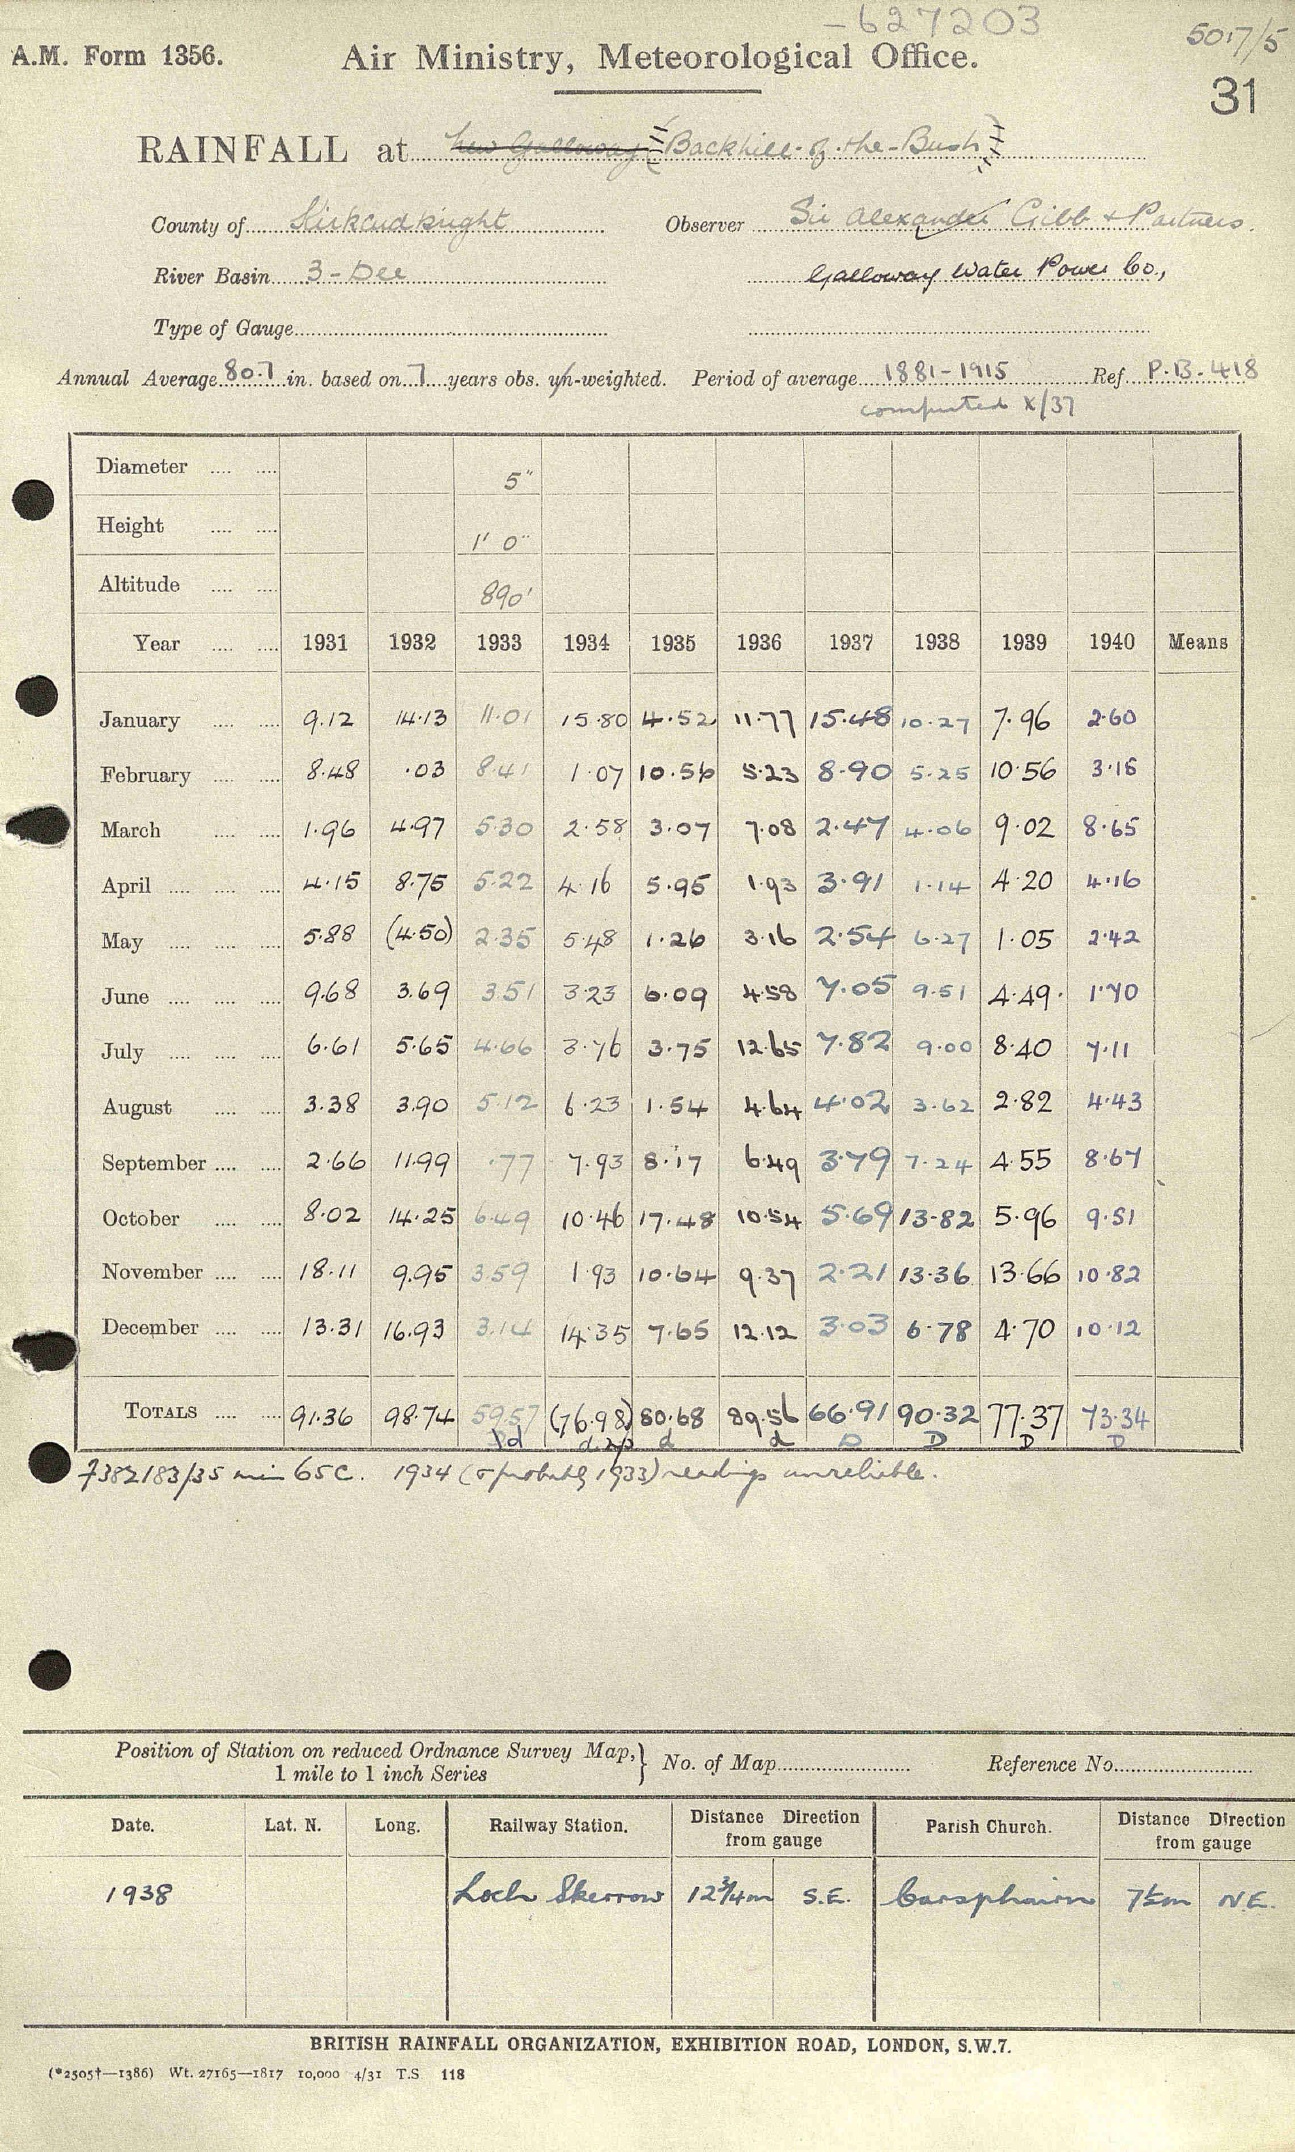 -627203
5017/5
A.M. Form 1356. Air Ministry, Meteorological Office.
31
RAINFALL at New Galloway (Backhill-of-the-Bush)
County of Kirkcudbright Observer Sir Alexander Gibb & Partners.
River Basin 3-Dee Galloway Water Power Co.,
Type of Gauge
Annual Average 80.7 in. based on 7 years obs. un-weighted. Period of average 1881-1915 Ref. P.B. 418
computed X/37
Diameter 5"
Height 1' 0"
Altitude 890'
Year 1931 1932 1933 1934 1935 1936 1937 1938 1939 1940 Means
January 9.12 14.13 11.01 15.80 4.52 11.77 15.48 10.27 7.96 2.60
February 8.48 .03 8.41 1.07 10.56 5.23 8.90 5.25 10.56 3.15
March 1.96 4.97 5.30 2.58 3.07 7.08 2.47 4.06 9.02 8.65
April 4.15 8.75 5.22 4.16 5.95 1.93 3.91 1.14 4.20 4.16
May 5.88 (4.50) 2.35 5.48 1.26 3.16 2.54 6.27 1.05 2.42
June 9.68 3.69 3.51 3.23 6.09 4.58 7.05 9.51 4.49 1.70
July 6.61 5.65 4.66 3.76 3.75 12.65 7.82 9.00 8.40 7.11
August 3.38 3.90 5.12 6.23 1.54 4.64 4.02 3.62 2.82 4.43
September 2.66 11.99 .77 7.93 8.17 6.49 3.79 7.24 4.55 8.67
October 8.02 14.25 6.49 10.46 17.48 10.54 5.69 13.82 5.96 9.51
November 18.11 9.95 3.59 1.93 10.64 9.37 2.21 13.36 13.66 10.82
December 13.31 16.93 3.14 14.35 7.65 12.12 3.03 6.78 4.70 10.12
TOTALS 91.36 98.74 59.57 (76.98) 80.68 89.56 66.91 90.32 77.37 73.34
d d d D D D D
7382183/35 min 65C. 1934 (& probably 1933) readings unreliable.
Position of Station on reduced Ordnance Survey Map, } No. of Map Reference No.
1 mile to 1 inch Series
Date. Lat. N. Long. Railway Station. Distance Direction from gauge Parish Church. Distance Direction from gauge
1938 Loch Skerrow 12¾m S.E. Carsphairn 7½m N.E.
BRITISH RAINFALL ORGANIZATION, EXHIBITION ROAD, LONDON, S.W.7.
(*2505†—1386) Wt. 27165—1817 10,000 4/31 T.S 118